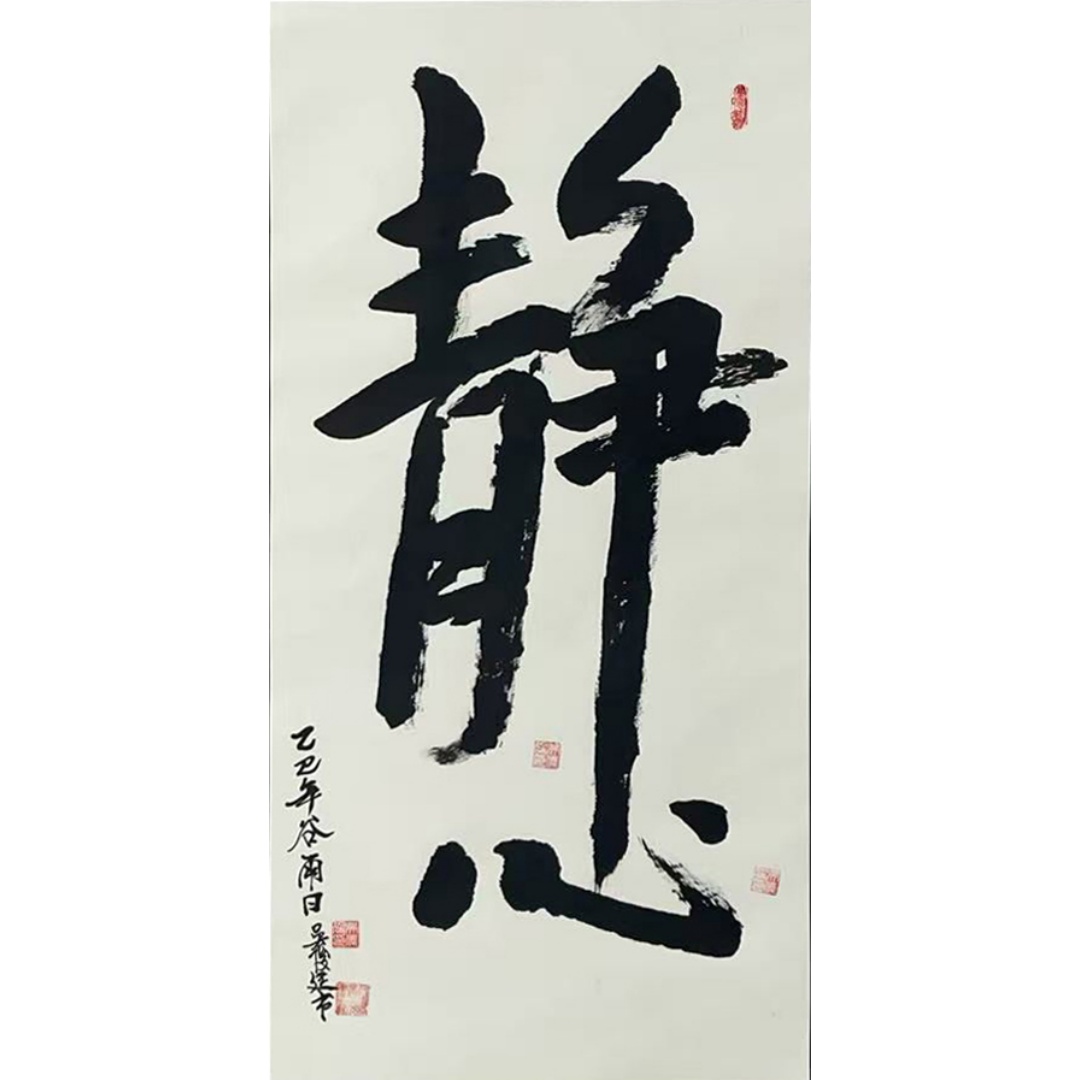 静心
乙巳年谷雨日